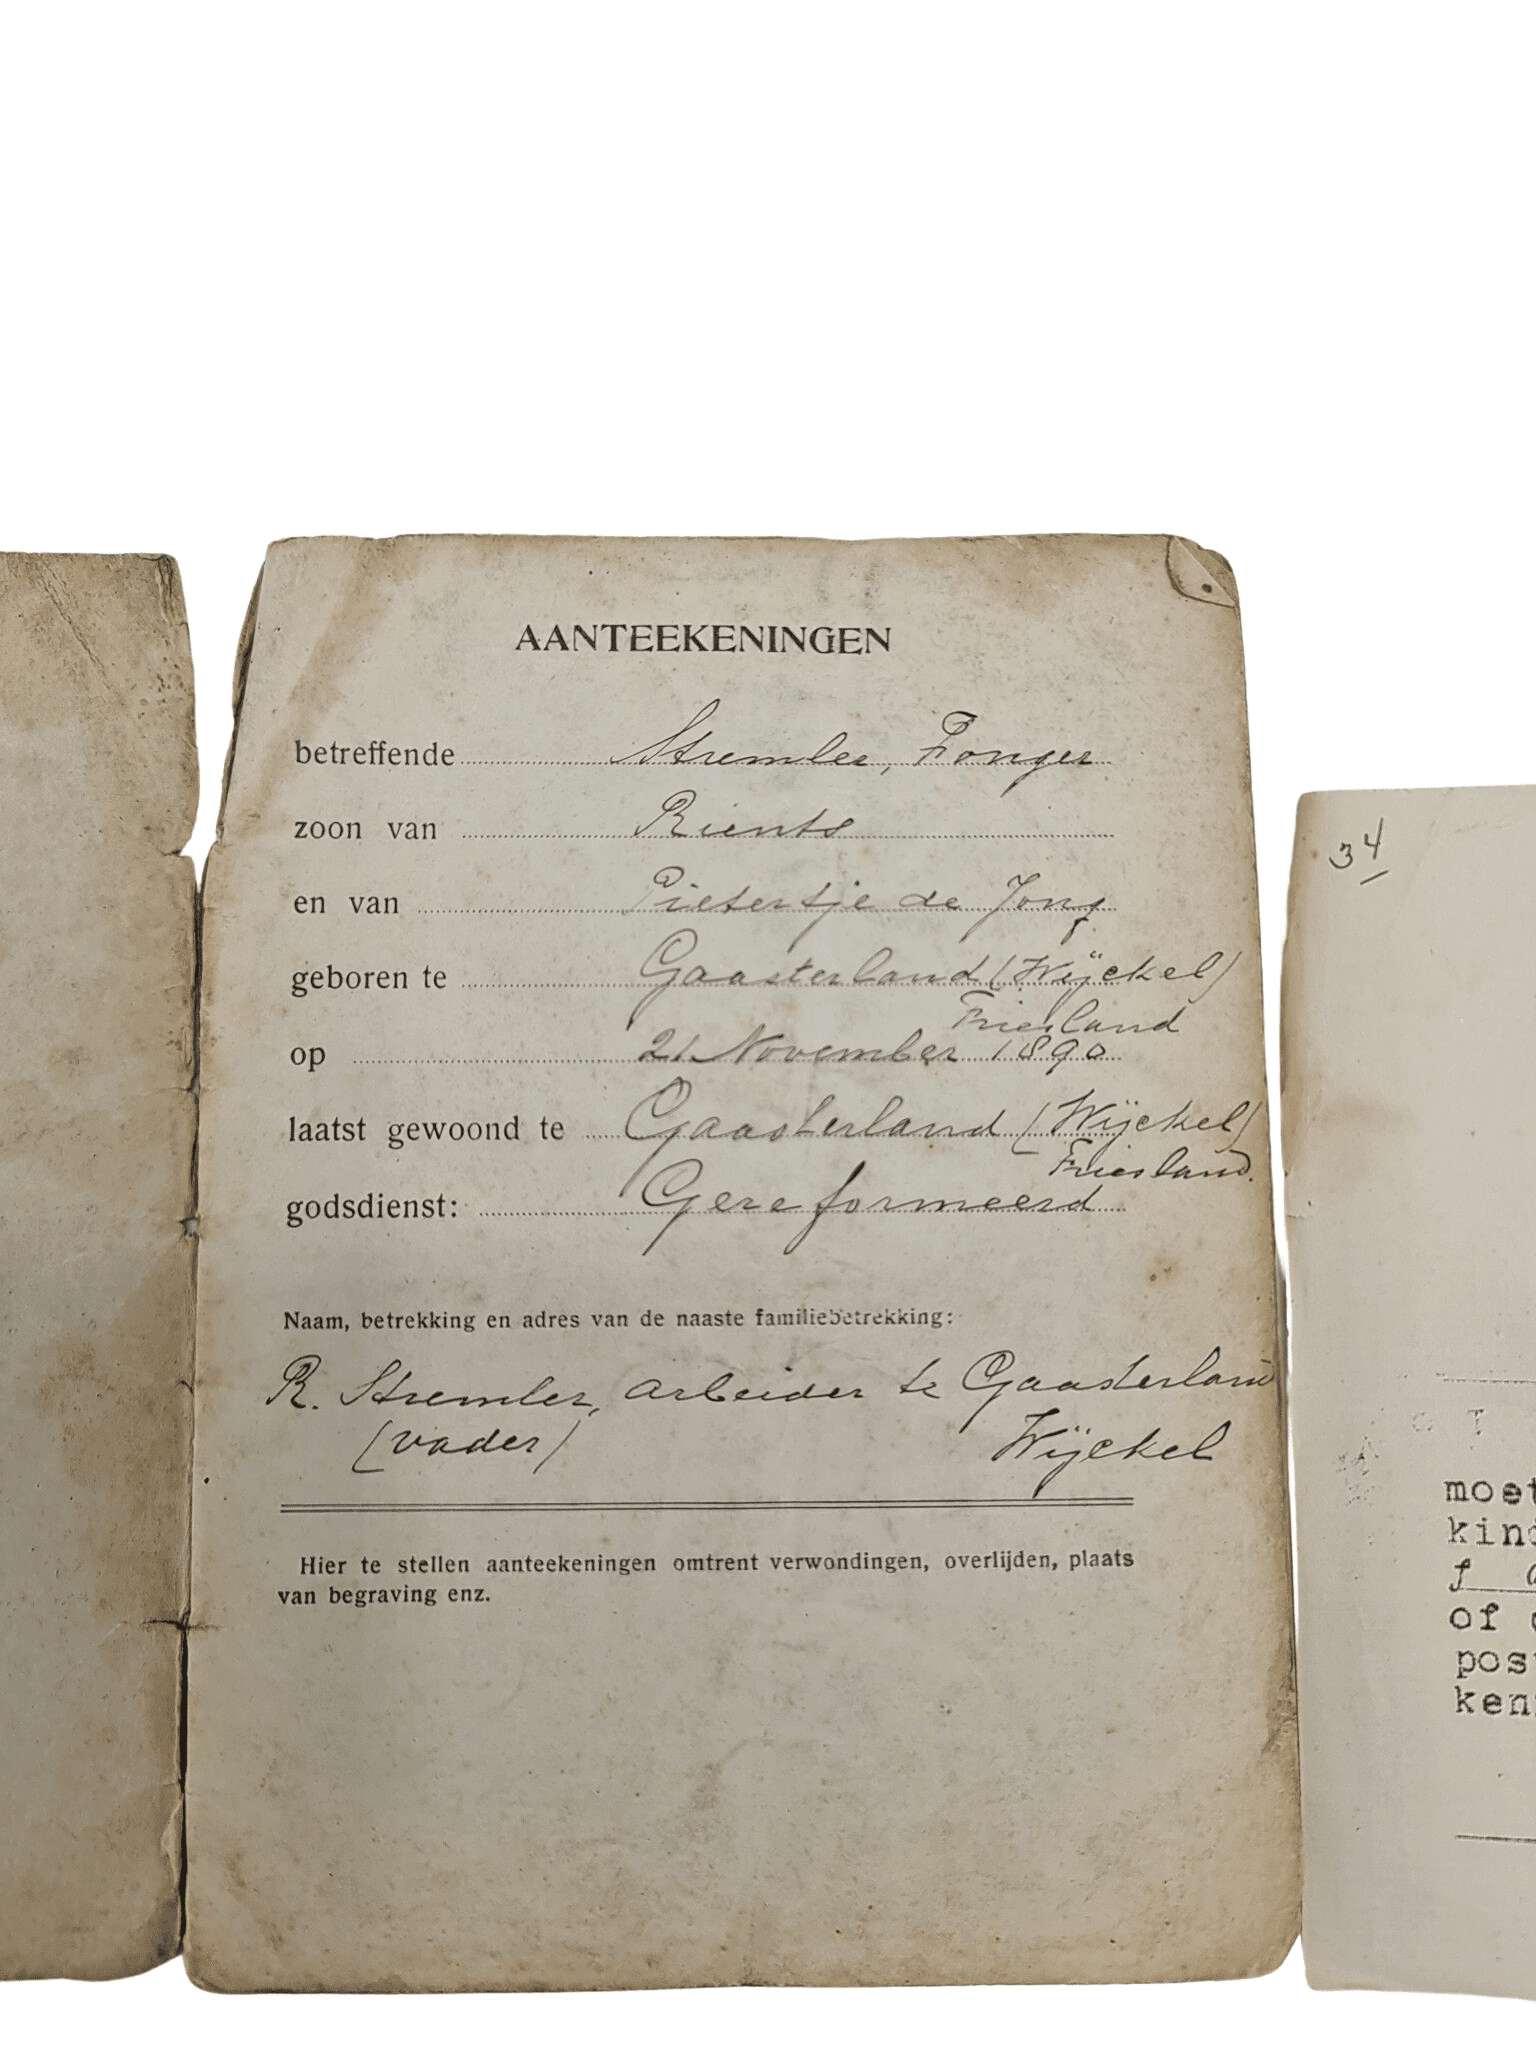 AANTEEKENINGEN
betreffende Stremler, Fonger
zoon van Rients
en van Pietertje de Jong
geboren te Gaasterland (Wÿckel)
Friesland
op 21 November 1890
laatst gewoond te Gaasterland (Wÿckel)
Friesland.
godsdienst: Gereformeerd
Naam, betrekking en adres van de naaste familiebetrekking:
R. Stremler, arbeider te Gaasterland
(vader) Wÿckel
Hier te stellen aanteekeningen omtrent verwondingen, overlijden, plaats
van begraving enz.
34
moet
kind
f
of
post
ken